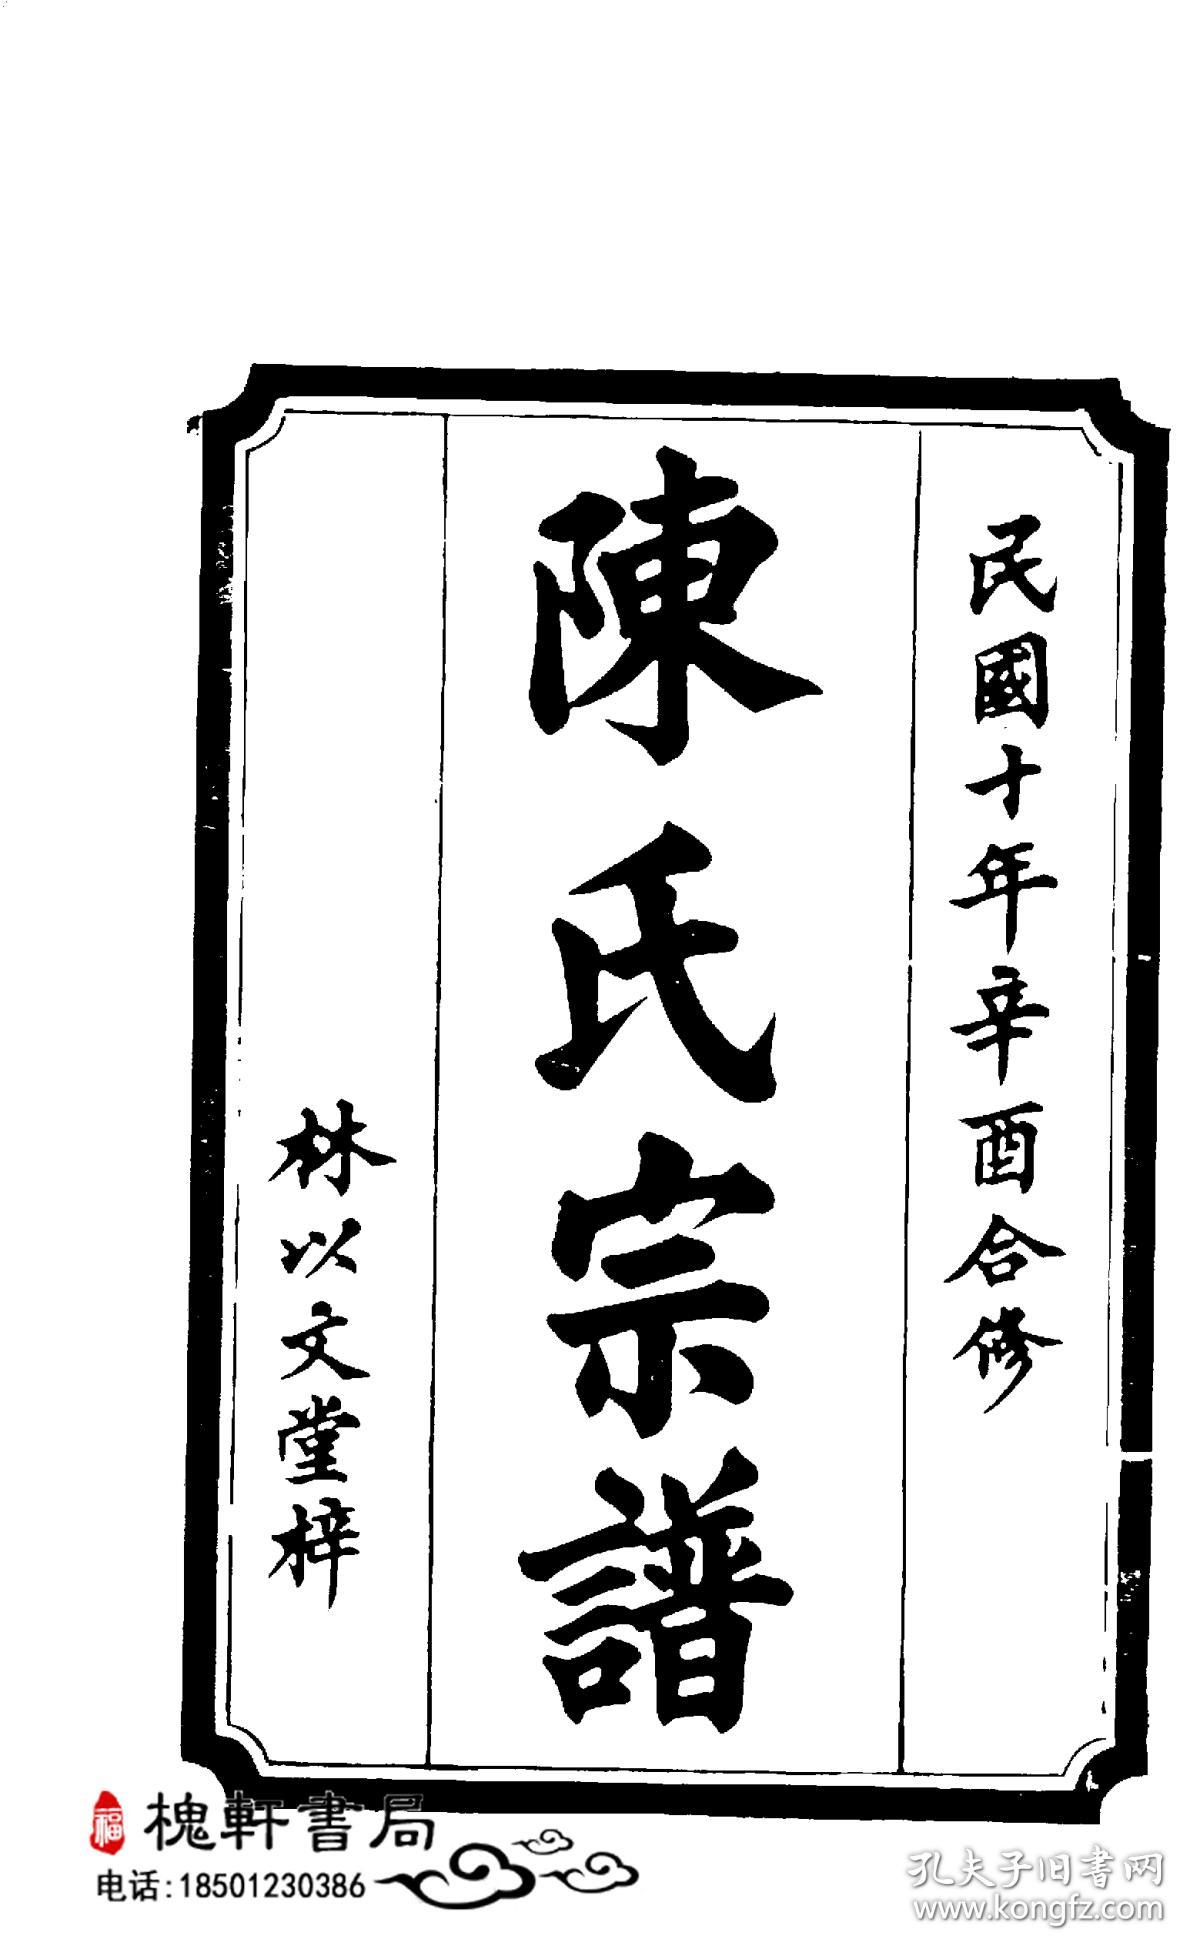 民國十年辛酉合修
陳氏宗譜
林以文堂梓
福
槐軒書局
电话:18501230386
孔夫子旧书网
www.kongfz.com